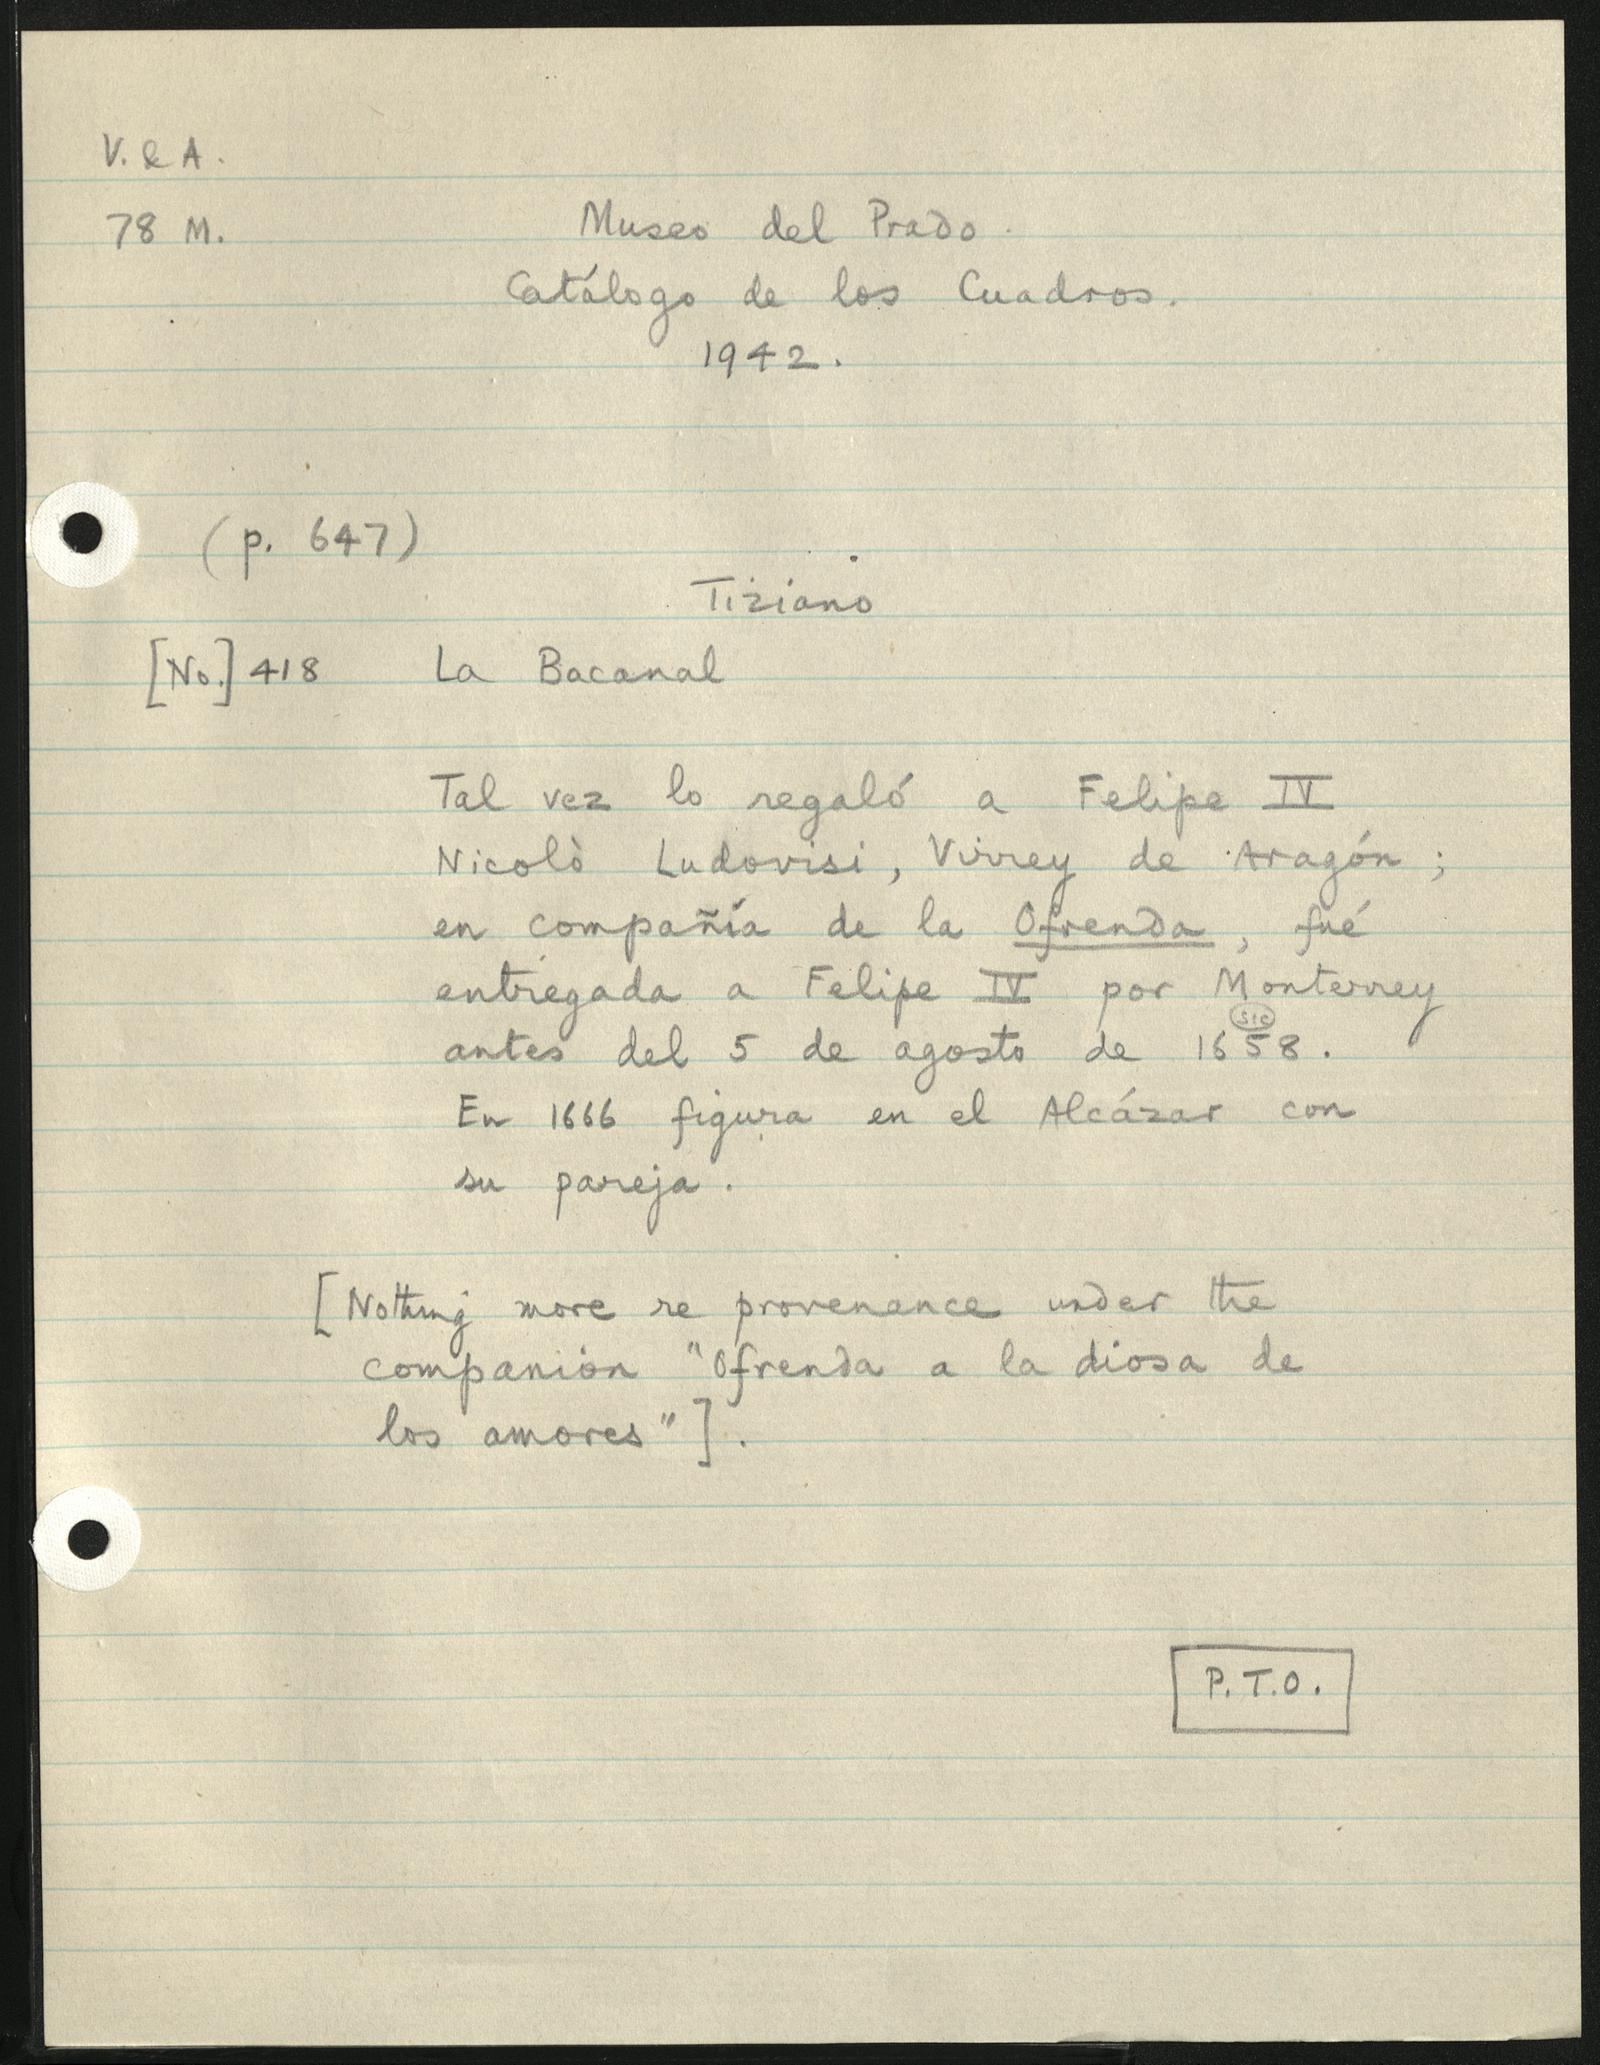 V. & A.
78 M.
Museo del Prado.
Catálogo de los Cuadros.
1942.
(p. 647)
Tiziano
[No.] 418 La Bacanal
Tal vez lo regaló a Felipe IV
Nicolò Ludovisi, Virrey de Aragón;
en compañía de la Ofrenda, fué
entregada a Felipe IV por Monterrey
sic
antes del 5 de agosto de 1658.
En 1666 figura en el Alcázar con
su pareja.
[Nothing more re provenance under the
companion "Ofrenda a la diosa de
los amores"].
P.T.O.